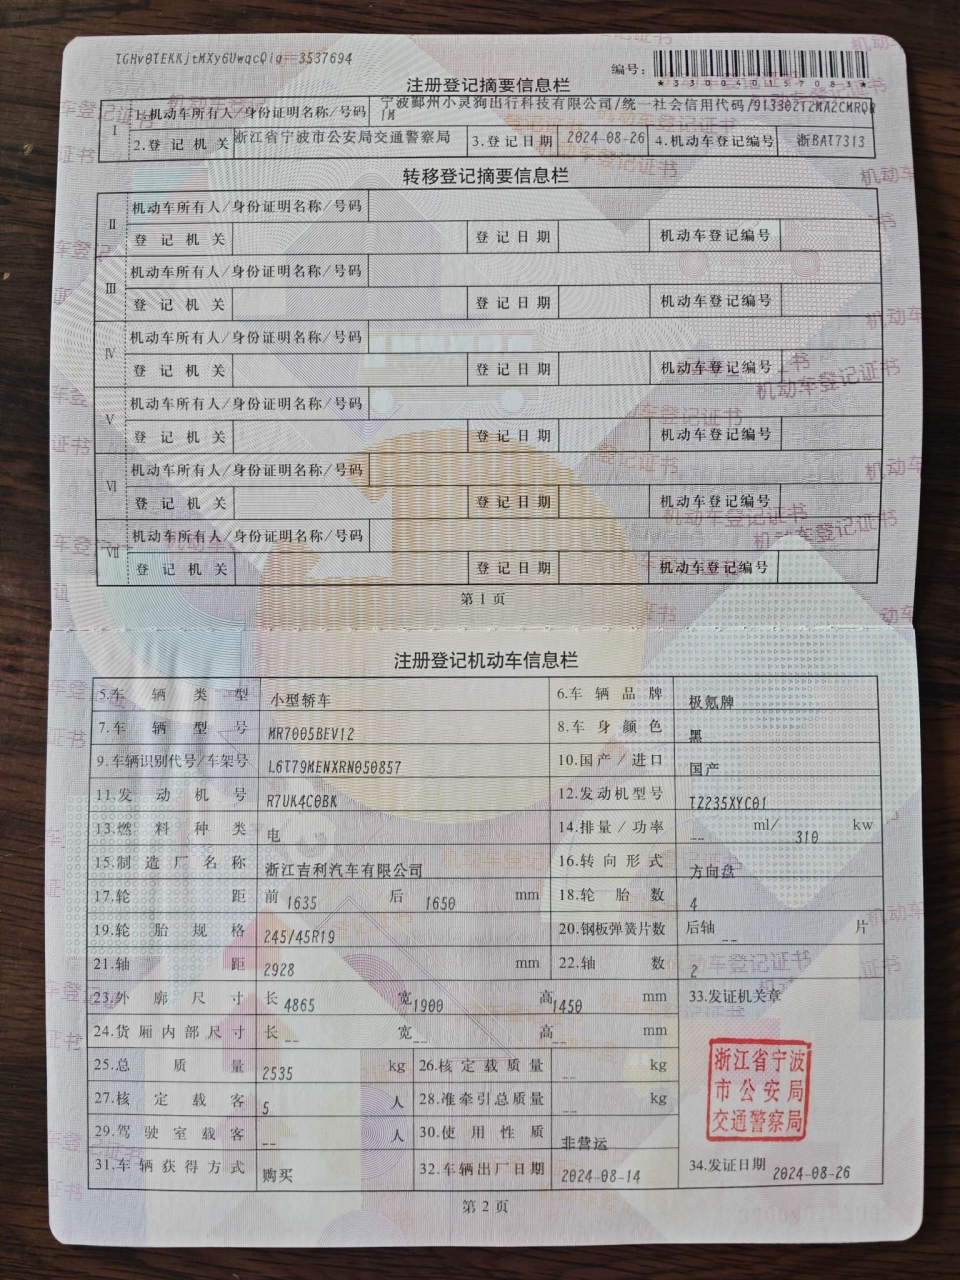 TGHv0IEKKjtMXy6UwqcQig==3537694
编号：
*330040157083*
注册登记摘要信息栏
I 1.机动车所有人/身份证明名称/号码 宁波鄞州小灵狗出行科技有限公司/统一社会信用代码/91330212MA2CMRQR1M
2.登记机关 浙江省宁波市公安局交通警察局 3.登记日期 2024-08-26 4.机动车登记编号 浙BAT7313
转移登记摘要信息栏
II 机动车所有人/身份证明名称/号码
登记机关 登记日期 机动车登记编号
III 机动车所有人/身份证明名称/号码
登记机关 登记日期 机动车登记编号
IV 机动车所有人/身份证明名称/号码
登记机关 登记日期 机动车登记编号
V 机动车所有人/身份证明名称/号码
登记机关 登记日期 机动车登记编号
VI 机动车所有人/身份证明名称/号码
登记机关 登记日期 机动车登记编号
VII 机动车所有人/身份证明名称/号码
登记机关 登记日期 机动车登记编号
第1页
注册登记机动车信息栏
5.车辆类型 小型轿车 6.车辆品牌 极氪牌
7.车辆型号 MR7005BEV12 8.车身颜色 黑
9.车辆识别代号/车架号 L6T79MENXRN050857 10.国产/进口 国产
11.发动机号 R7UK4C0BK 12.发动机型号 TZ235XYC01
13.燃料种类 电 14.排量/功率 -- ml/ 310 kw
15.制造厂名称 浙江吉利汽车有限公司 16.转向形式 方向盘
17.轮距 前 1635 后 1650 mm 18.轮胎数 4
19.轮胎规格 245/45R19 20.钢板弹簧片数 后轴 -- 片
21.轴距 2928 mm 22.轴数 2
23.外廓尺寸 长 4865 宽 1900 高 1450 mm 33.发证机关章
24.货厢内部尺寸 长 -- 宽 -- 高 -- mm
25.总质量 2535 kg 26.核定载质量 -- kg
27.核定载客 5 人 28.准牵引总质量 -- kg
29.驾驶室载客 -- 人 30.使用性质 非营运
31.车辆获得方式 购买 32.车辆出厂日期 2024-08-14 34.发证日期 2024-08-26
浙江省宁波
市公安局
交通警察局
第2页